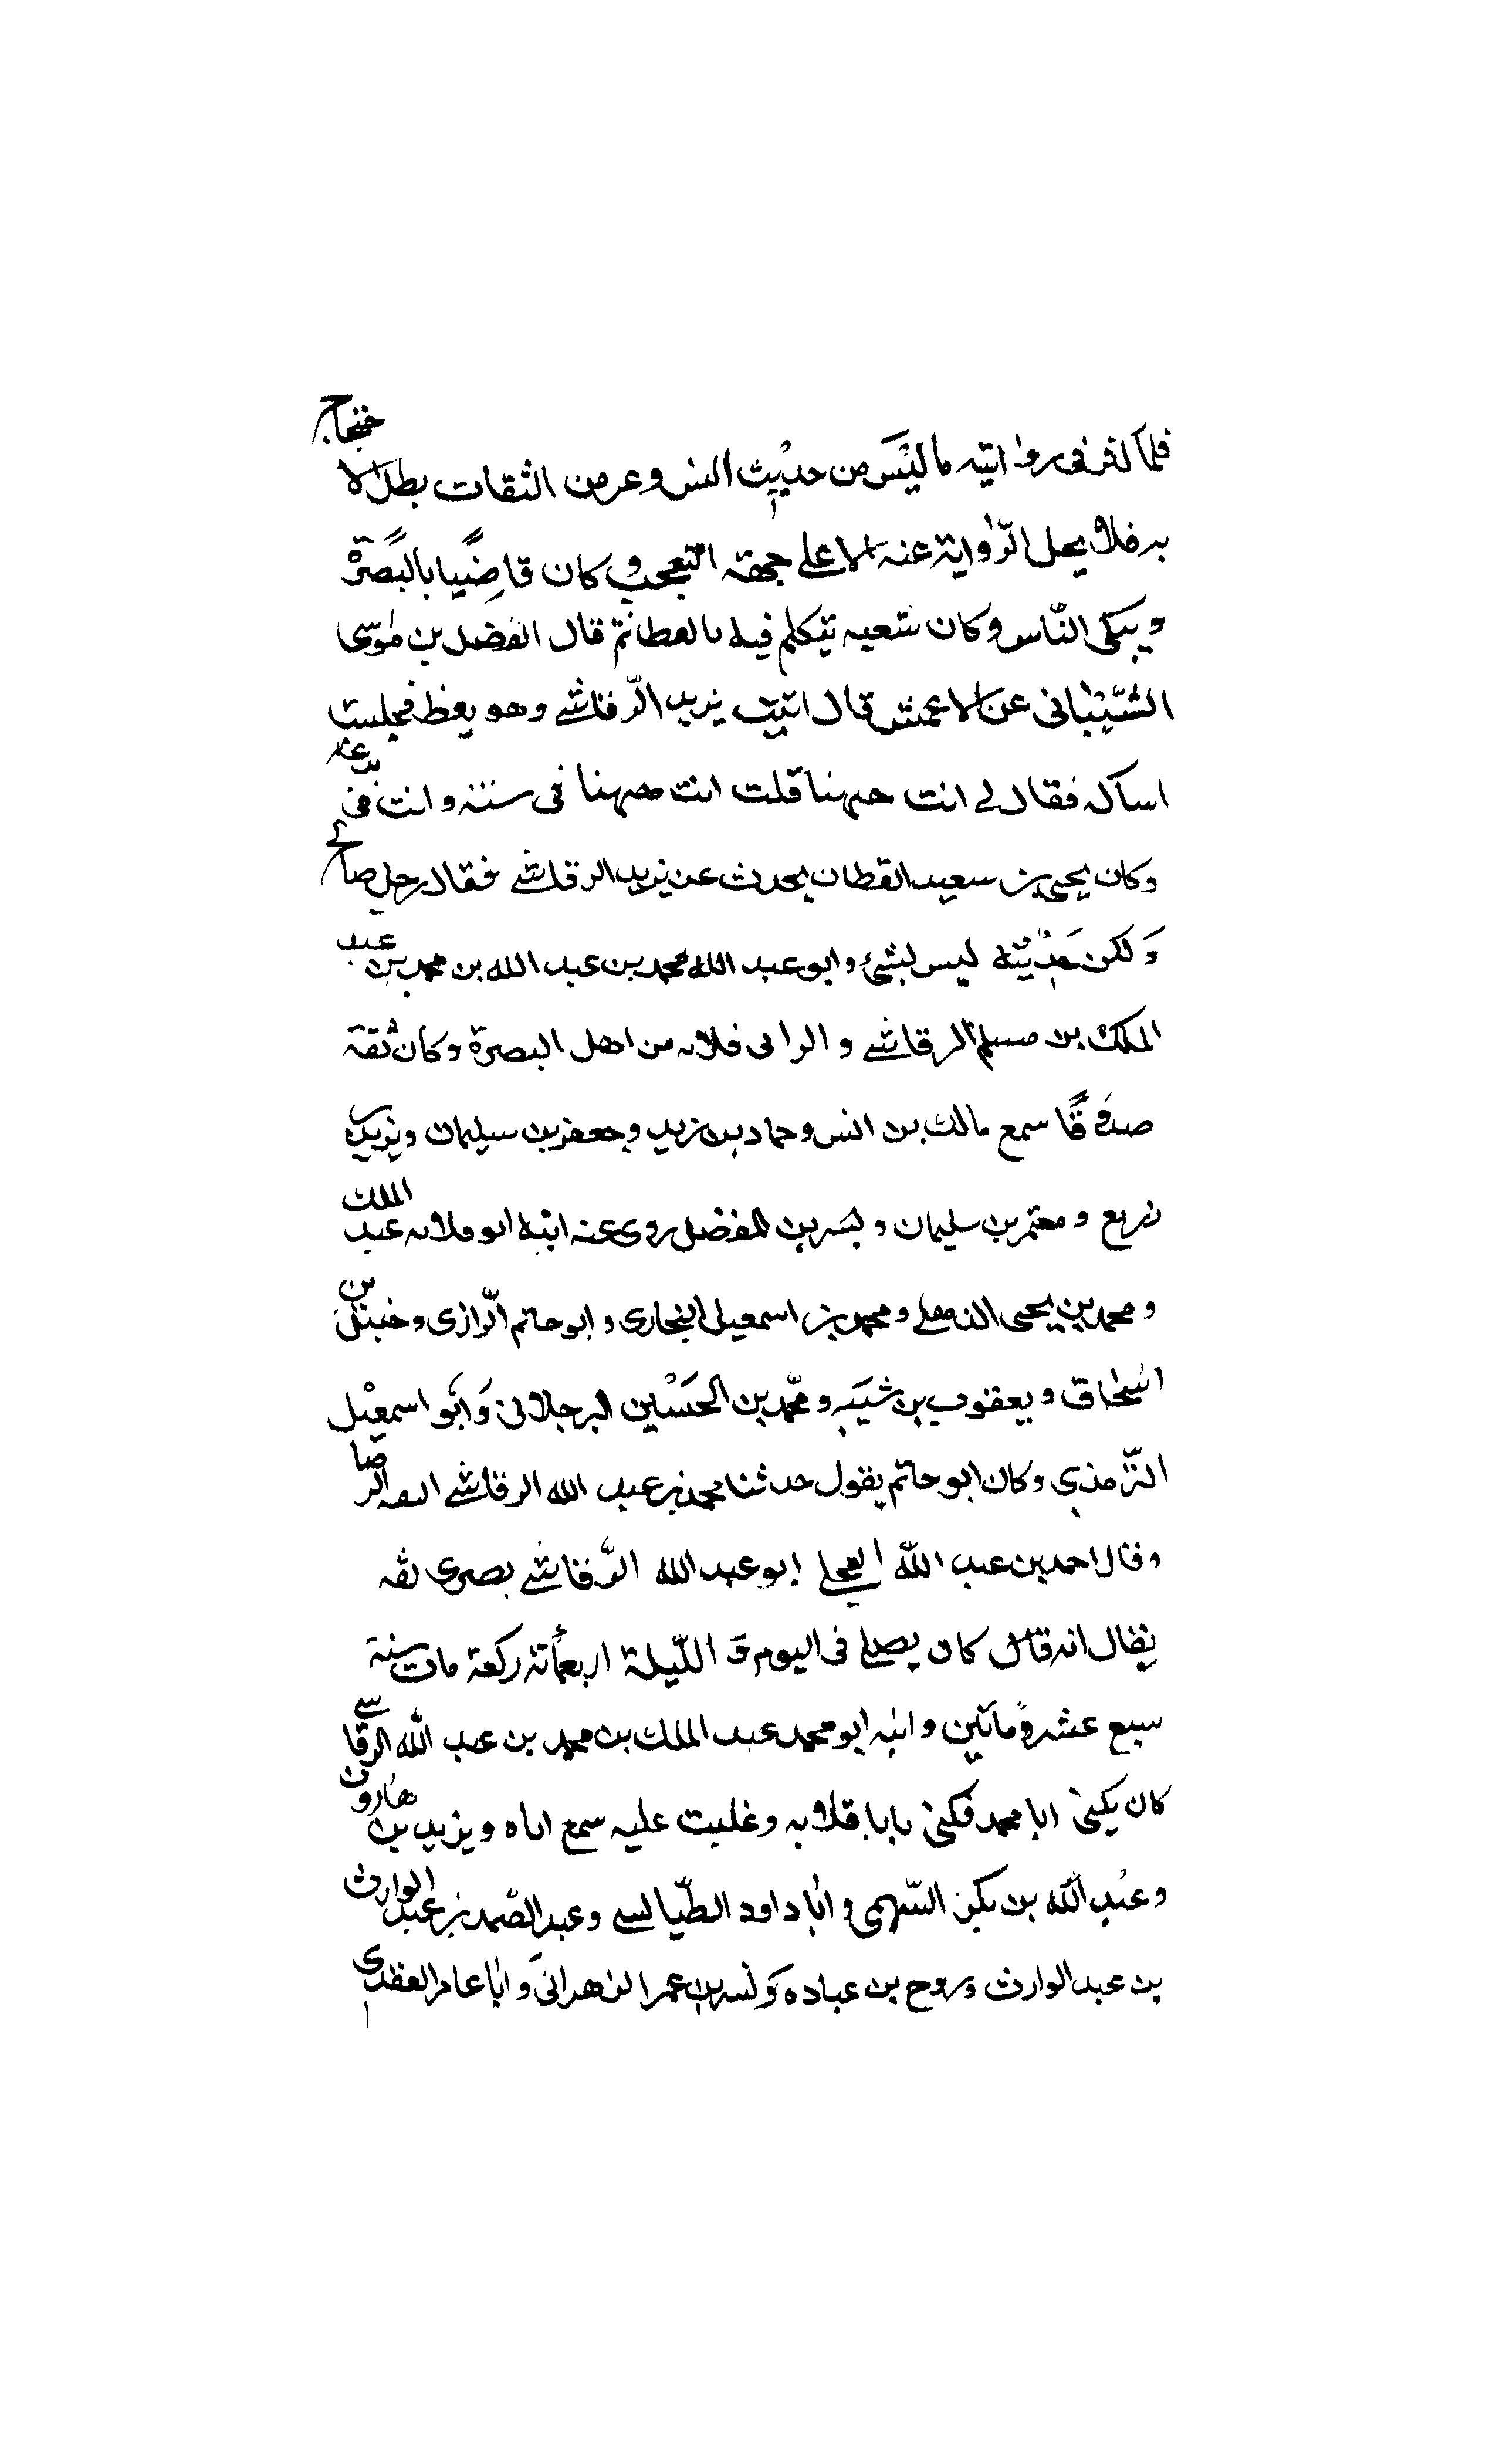 فلما كثر فى روايته ما ليس من حديث انس وغير من الثقات بطل الاحتجاج
به فلا يحل الرواية عنه الا على جهة التعجب وكان قاضيا بالبصرة
ويبكى الناس وكان شعبه يتكلم فيه بالعطائم قال الفضل بن موسى
الشيبانى عن الاعمش قال اتيت يزيد الرقاشى وهو يعظ فجلست
اساكه فقال لى انت ههنا قلت انت ههنا فى سنة وانت فى بدعة
وكان يحيى بن سعيد القطان يحدث عن يزيد الرقاشى فقال رجل صالح
ولكن حديثه ليس بشئ وابو عبد الله محمد بن عبد الله بن محمد بن عبد
الملك بن مسلم الرقاشى والد ابى قلابه من اهل البصرة وكان ثقة
صدوقا سمع مالك بن انس وحماد بن زيد وجعفر بن سليمان ويزيد بن
زريع ومعتمر بن سليمان وبشر بن المفضل روى عنه ابنه ابو قلابه عبد الملك
ومحمد بن يحيى الذهلى ومحمد بن اسمعيل البخارى وابو حاتم الرازى وحنبل بن
اسحاق ويعقوب بن شيبه ومحمد بن الحسين البرجلانى وابو اسمعيل
الترمذى وكان ابو حاتم يقول حدثنا محمد بن عبد الله الرقاشى الثقه الرضا
وقال احمد بن عبد الله العجلى ابو عبد الله الرقاشى بصرى ثقه
يقال انه قال كان يصلى فى اليوم و الليلة اربعمأته ركعة مات سنة
سبع عشرة ومأتين وابنه ابو محمد عبد الملك بن محمد بن عبد الله الرقاشى
كان يكنى ابا محمد فكنى بابا قلابه وغلبت عليه سمع اباه ويزيد بن هارون
وعبد الله بن بكر السهمى وابا داود الطيالسى وعبد الصمد بن عبد الوارث
بن عبد الوارث وروح بن عباده وبشر بن عمر الزهرانى وابا عامر العقدى